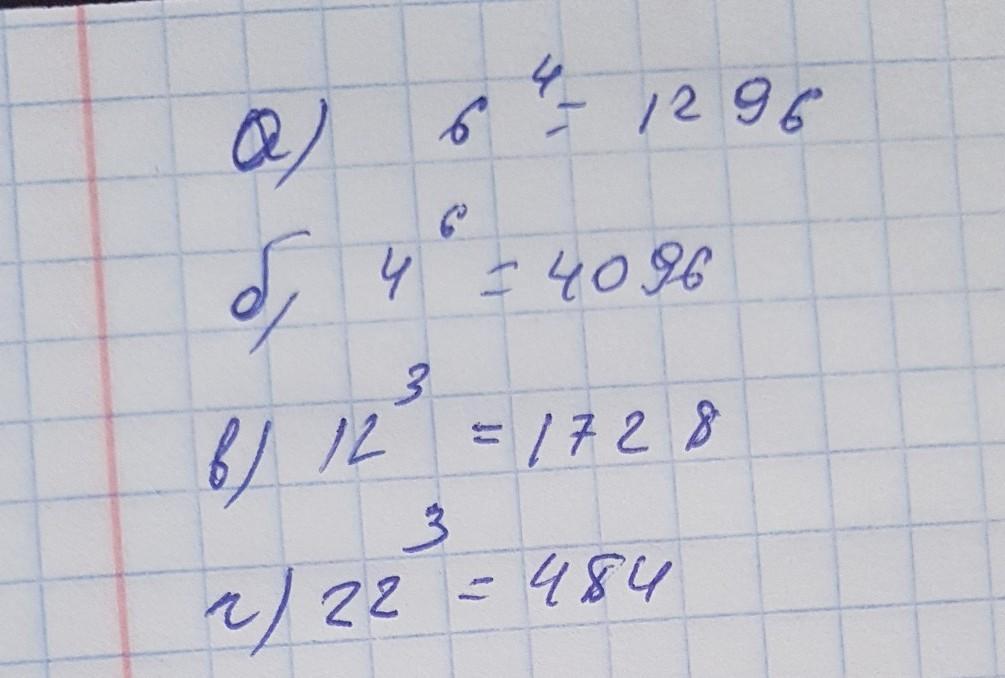 а) 6⁴ = 1296
б) 4⁶ = 4096
в) 12³ = 1728
г) 22³ = 484